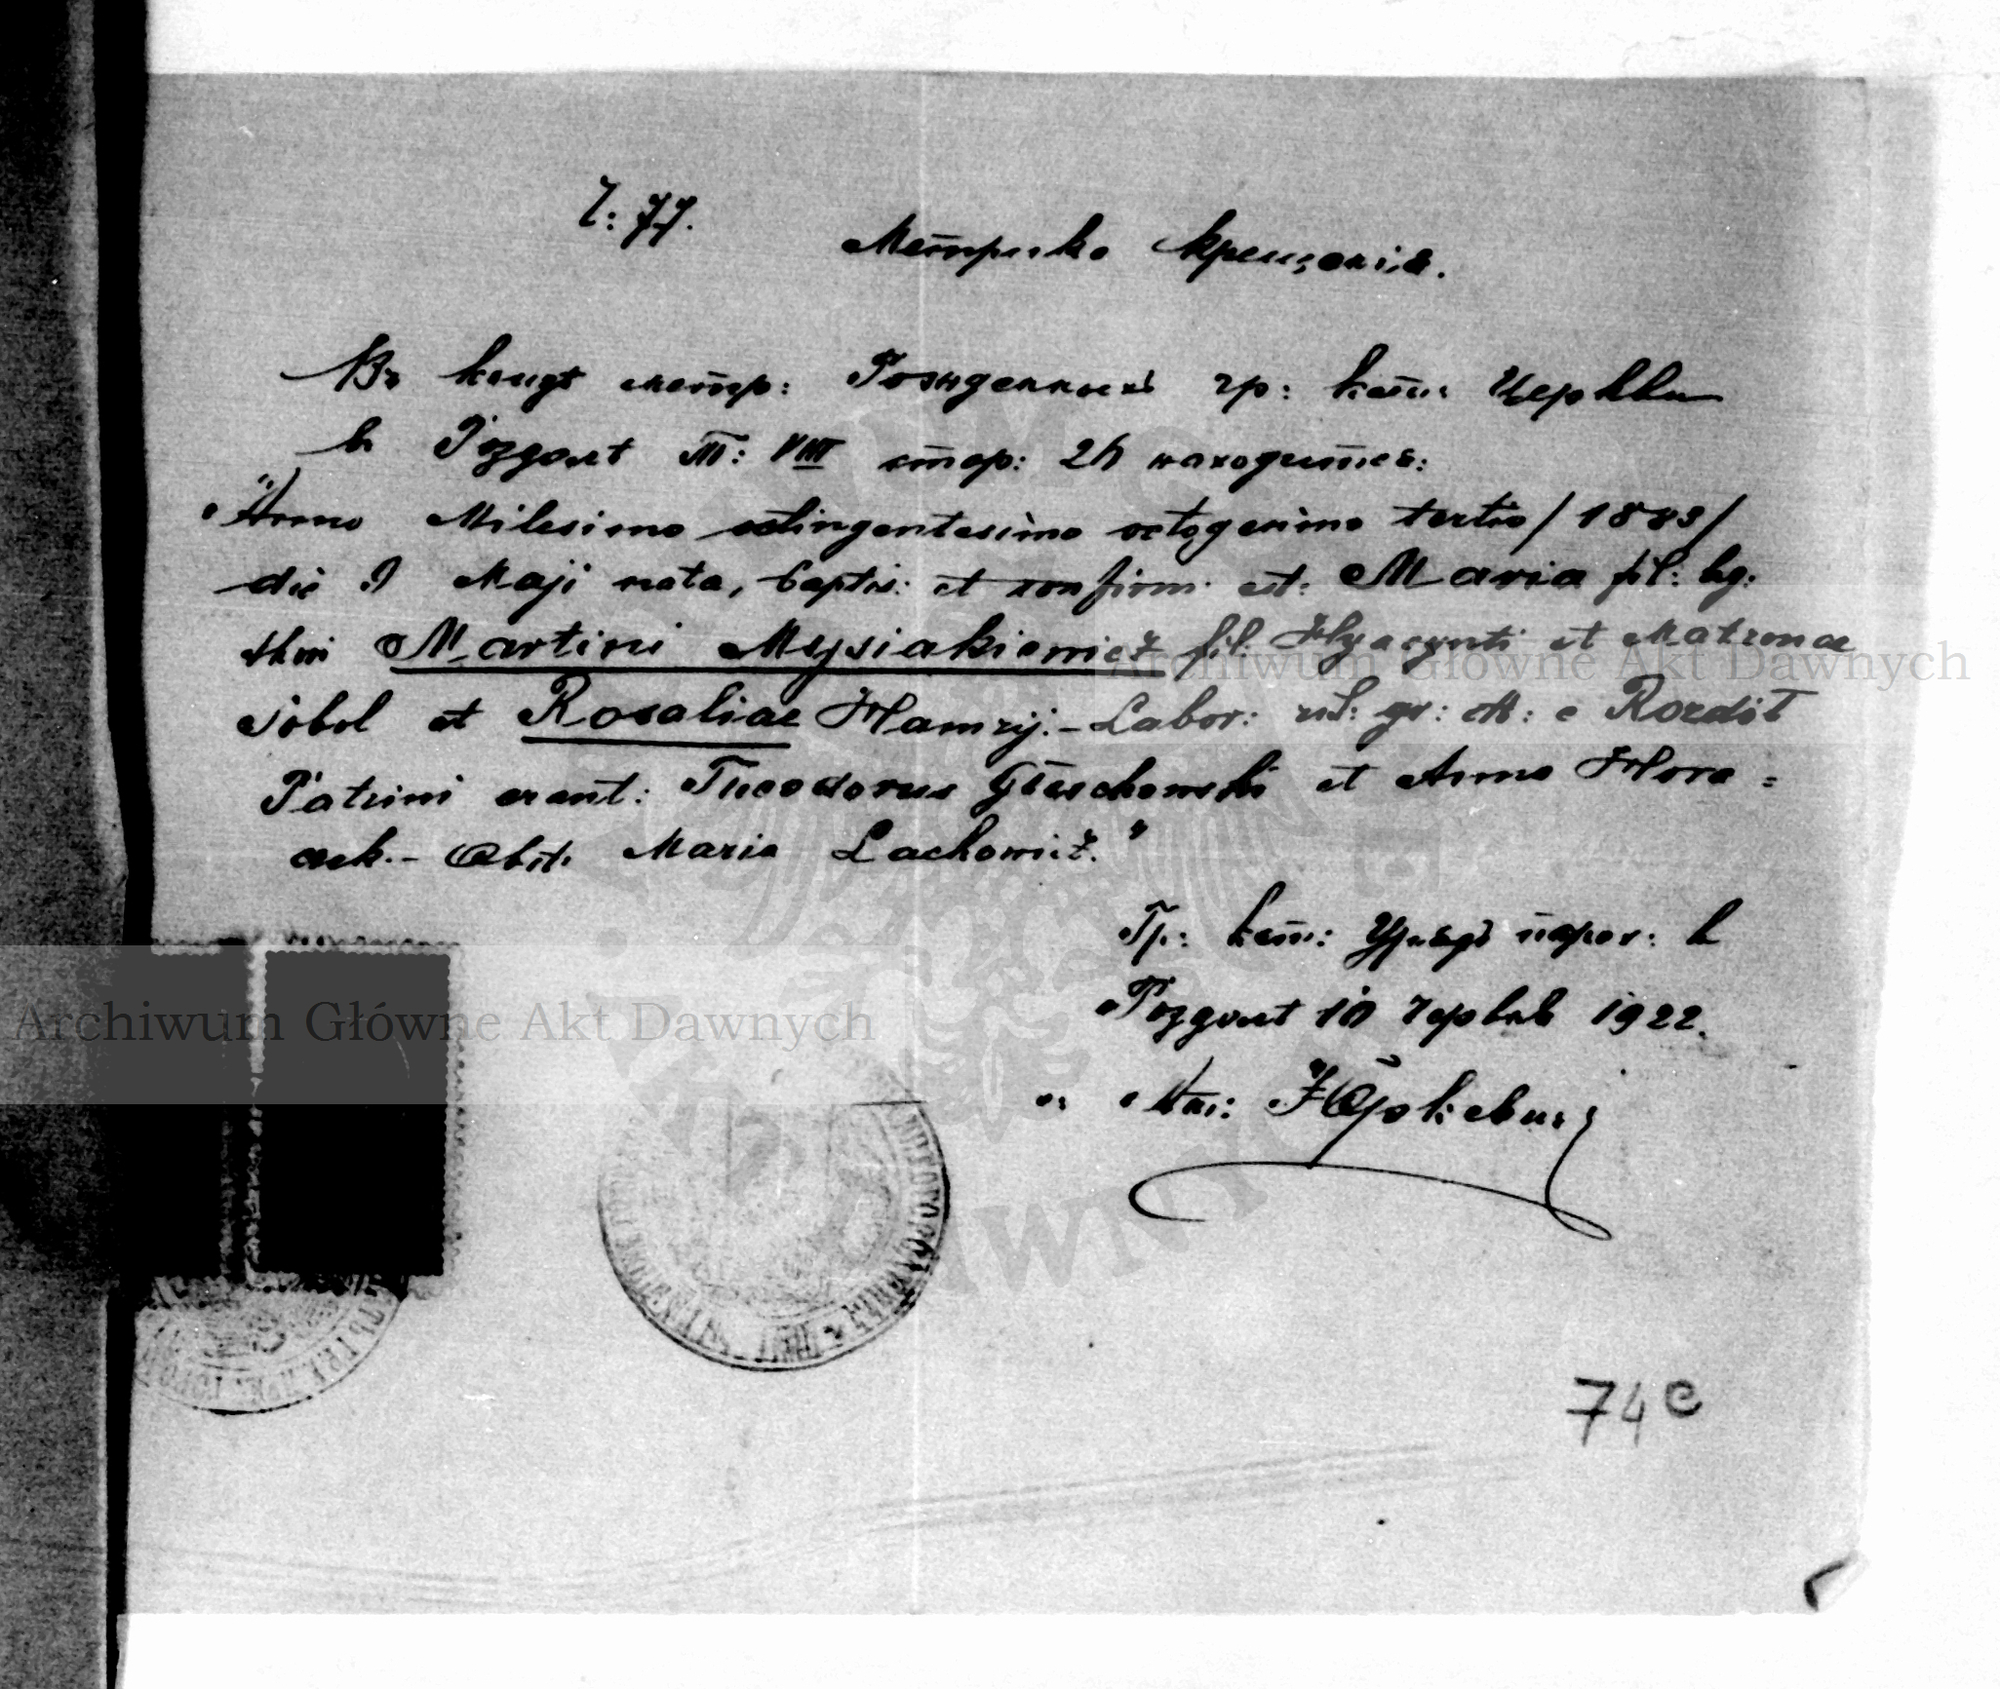 Ч: 77.
Метрика крещенія.
Въ книзѣ метр: Рожденныхъ гр: кат: Церкви
в Роздолѣ Т: VIII стор: 26 находитсѧ:
"Anno Milesimo octingentesimo octogesimo tertio /1883/
die 9 Maji nata, baptis: et confirm: est: Maria fil: lg:
thori Martini Mysiakiewicz fil: Hyacynti et Matronae
Sobol et Rosaliae Hamrij. - Labor: rit: gr: c: e Rozdół
Patrini erant: Theodorus et Anna Hora=
czek. - Obst: Maria Lachowicz."
Гр: кат: Урядъ парох: в
Роздолѣ 10 Червня 1922.
74c
Archiwum Główne Akt Dawnych
Archiwum Główne Akt Dawnych